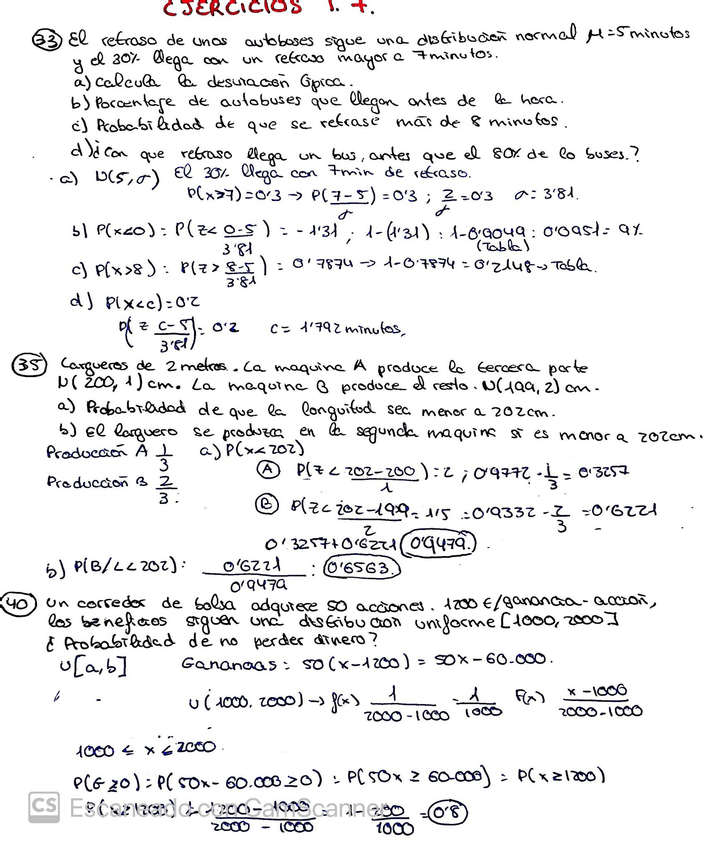 EJERCICIOS T. 7.
33) El retraso de unos autobuses sigue una distribución normal μ=5 minutos
y el 30% llega con un retraso mayor a 7 minutos.
a) Calcula la desviación típica.
b) Porcentaje de autobuses que llegan antes de la hora.
c) Probabilidad de que se retrase más de 8 minutos.
d) ¿Con que retraso llega un bus, antes que el 80% de lo buses.?
a) N(5,σ) El 30% llega con 7min de retraso.
P(x≥7)=0'3 → P(7-5/σ)=0'3 ; 2/σ=0'3 σ=3'81.
b) P(x<0): P(Z< 0-5/3'81) = -1'31 ; 1-(1'31) : 1-0'9049 : 0'0951= 9%
(Tabla)
c) P(x>8) : P(Z> 8-5/3'81) = 0'7874 → 1-0'7874 = 0'2148 → Tabla.
d) P(x<c)=0'2
P(Z C-5/3'81) = 0'2 c = 1'792 minutos,
35) Largueros de 2 metros. La maquina A produce la tercera parte
N(200, 1) cm. La maquina B produce el resto. N(199, 2) cm.
a) Probabilidad de que la longuitud sea menor a 202cm.
b) El larguero se produzca en la segunda maquina si es menor a 202cm.
Producción A 1/3 a) P(x<202)
(A) P(Z< 202-200/1) = 2 ; 0'9772 · 1/3 = 0'3257
Producción B 2/3.
(B) P(Z< 202-199/2 = 1'5 = 0'9332 · 2/3 = 0'6221
0'3257+0'6221 (0'9479.)
b) P(B/L<202): 0'6221/0'9479 : (0'6563)
40) Un corredor de bolsa adquiere 50 acciones. 1200 €/ganancia-acción,
los beneficios siguen una distribución uniforme [1000, 2000]
¿Probabilidad de no perder dinero?
U[a,b] Ganancias : 50(x-1200) = 50x - 60.000.
U(1000, 2000) → f(x) 1/2000-1000 = 1/1000 F(x) x-1000/2000-1000
1000 ≤ x ≤ 2000.
P(G≥0) = P(50x-60.000≥0) = P(50x ≥ 60.000) = P(x≥1200)
1200-1000/2000-1000 = 1-200/1000 = (0'8)
CS Escaneado con CamScanner